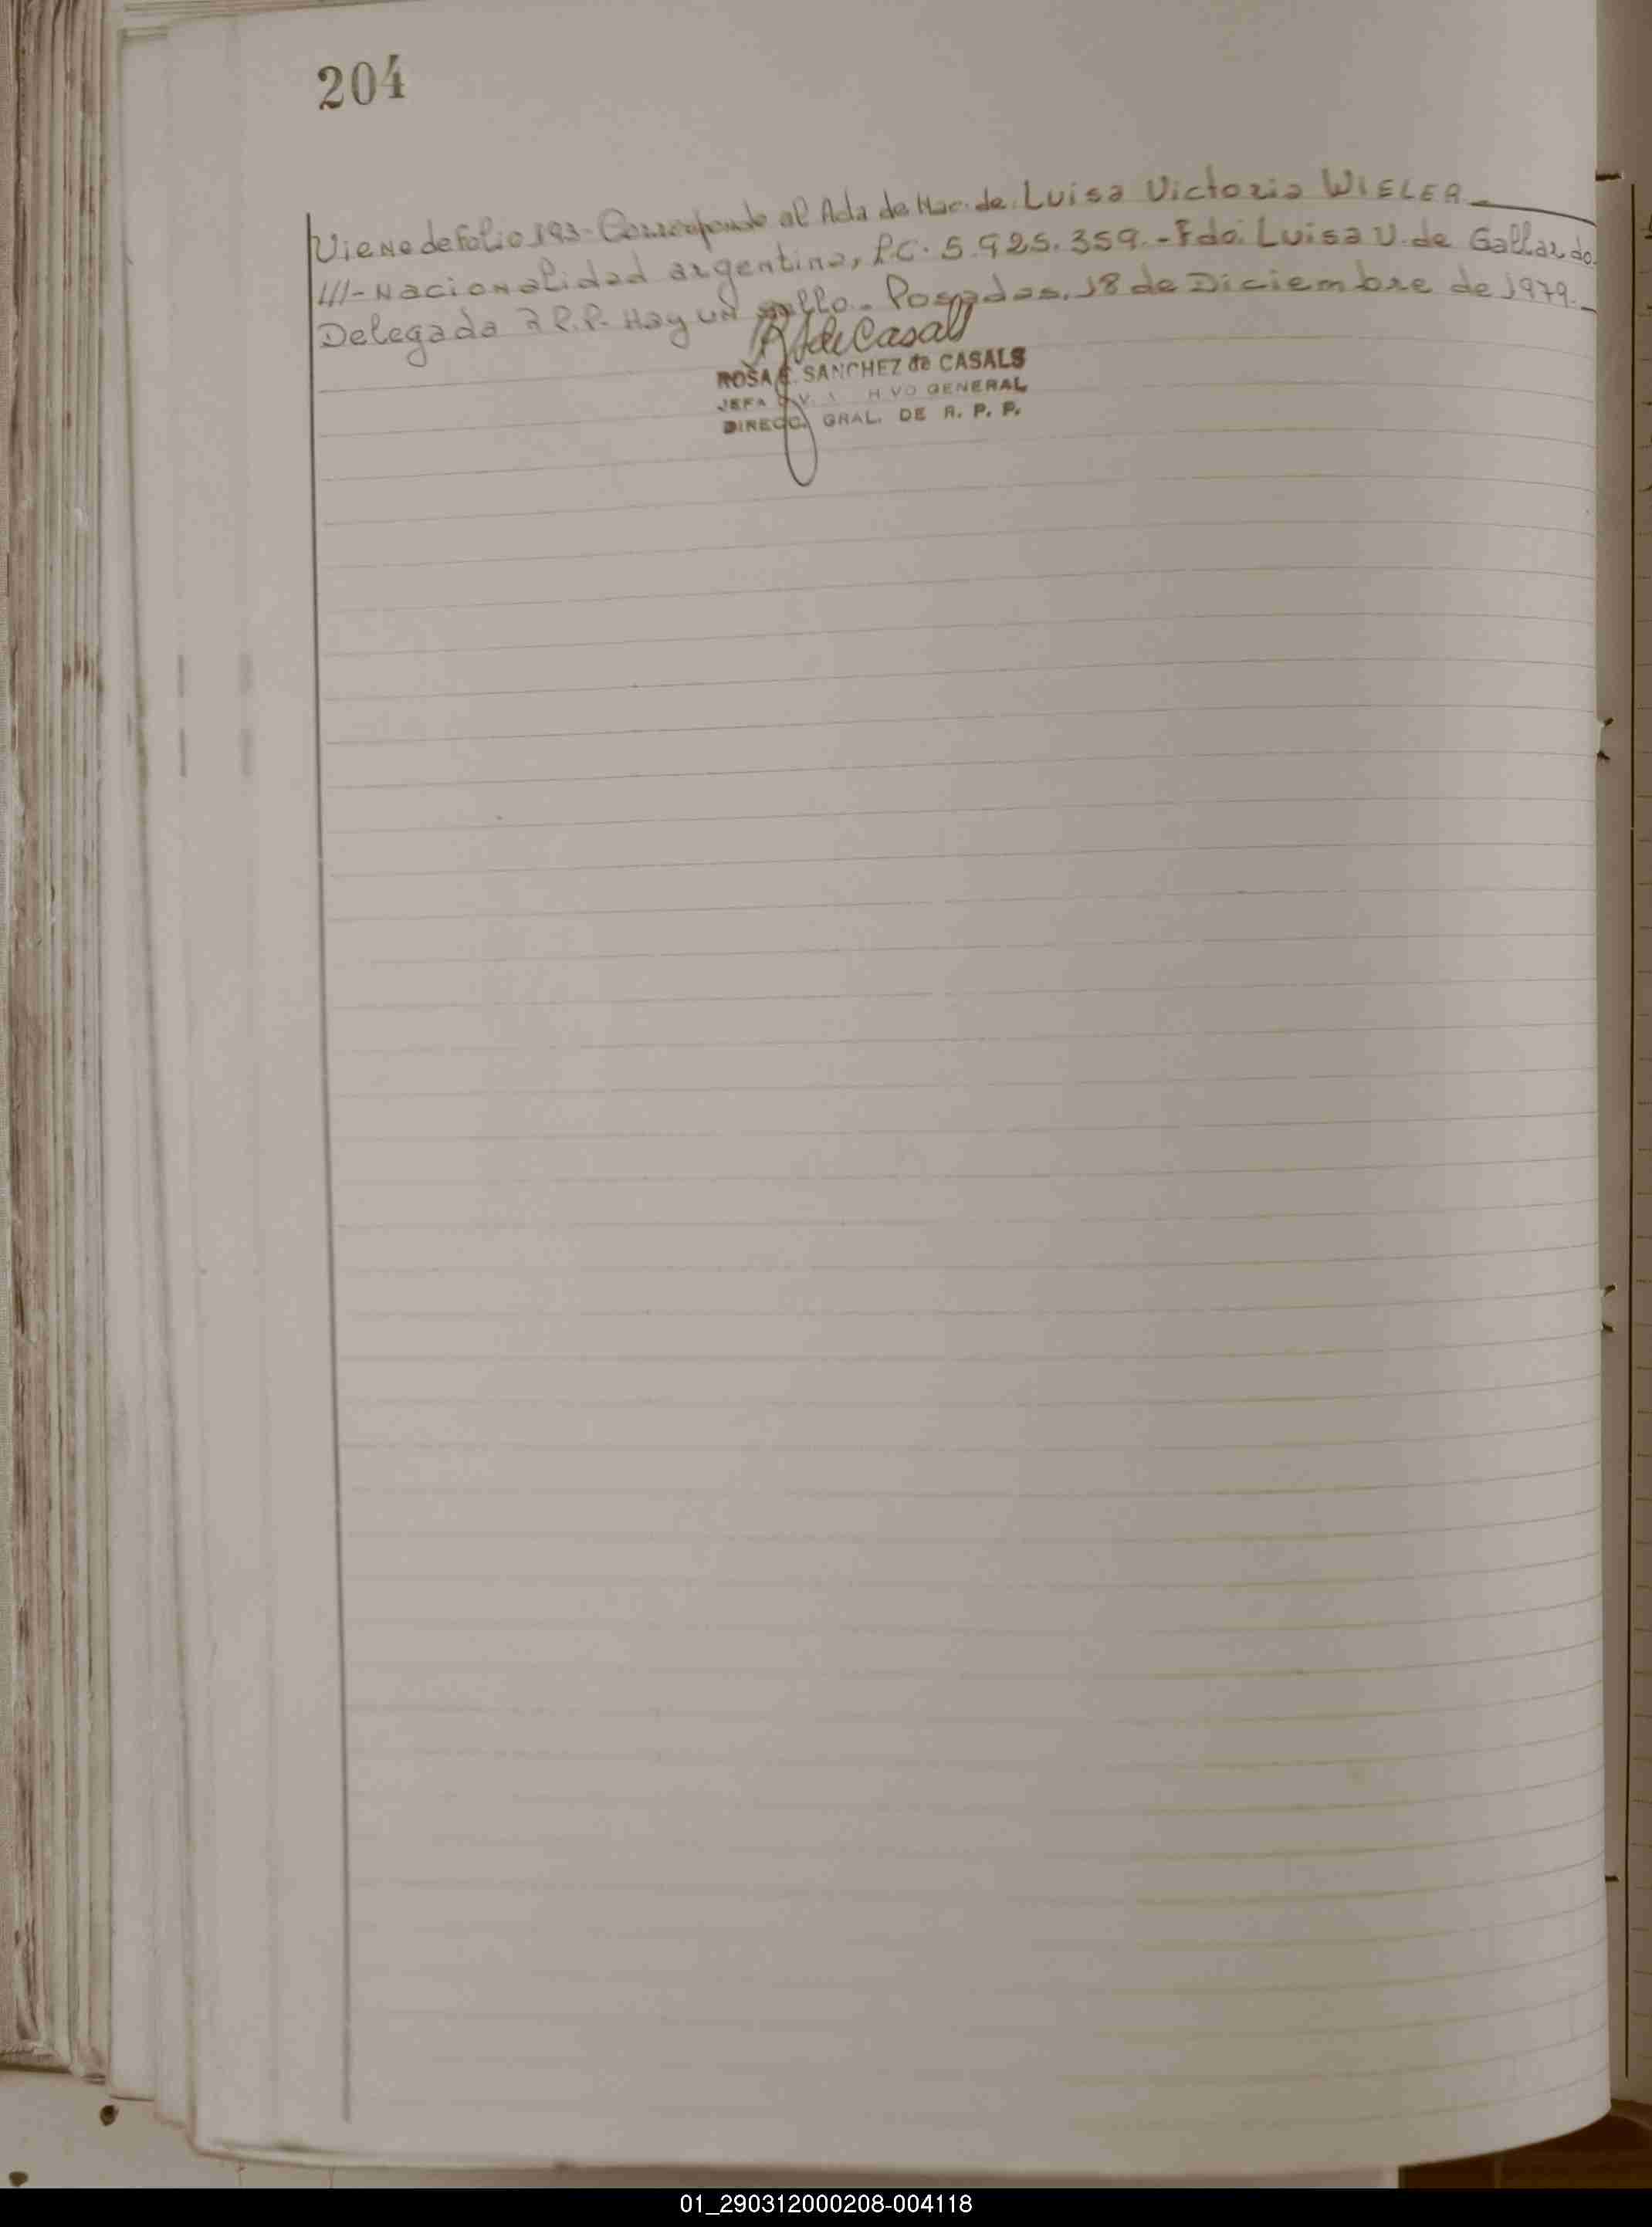 204
Viene de Folio 193- Corresponde al Acta de Nac. de. Luisa Victoria WIELER
///- Nacionalidad argentina, P.C. 5.925.359.- Fdo. Luisa V. de Gallardo.
Delegada R.P.P. Hay un sello.- Posadas, 18 de Diciembre de 1979.-
R S de Casals
ROSA E. SANCHEZ de CASALS
JEFA IV. HIVO GENERAL
DIRECC. GRAL. DE R. P. P.
01_290312000208-004118